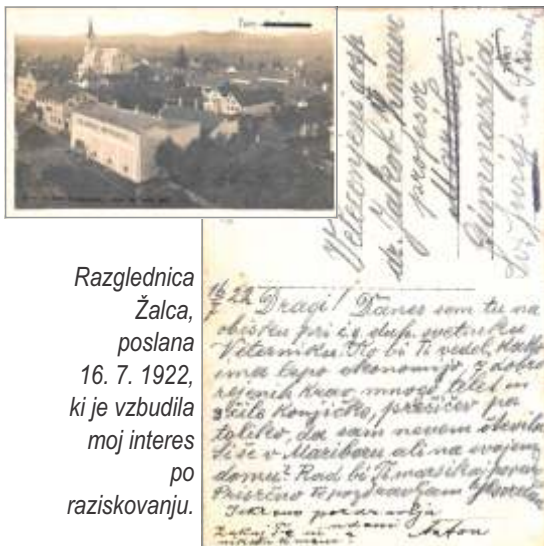 Velecenjeni gosp
dr. Jakob
profesor
Maribor
Gimnazija
Sv. Jurij
Razglednica
Žalca,
poslana
16. 7. 1922,
ki je vzbudila
moj interes
po
raziskovanju.
16/7 22 Dragi! Danes sem tu na
obisku pri duh. svetniku
Veterniku. Ko bi Ti vedel, kako
ima lepo ekonomijo, dobro
rejenih krav, mnogo telet in
čilo konjičko, prešičev pa
toliko, da sam nevem števila.
Si še v Mariboru ali na svojem
domu? Rad bi Ti marsikaj
Prisrčno Te pozdravljam
Iskreno pozdravlja
udani Anton